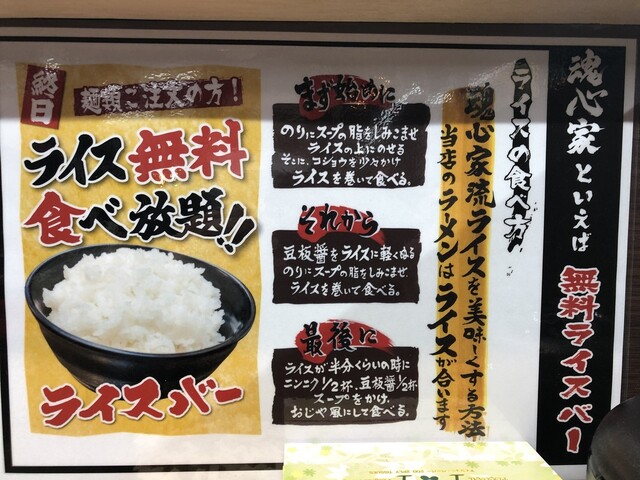 魂心家といえば
無料ライスバー
ライスの食べ方
魂心家流ライスを美味しくする方法
当店のラーメンはライスが合います
まず始めに
のりにスープの脂をしみこませ
ライスの上にのせる
そこに、コショウを少々かけ
ライスを巻いて食べる。
それから
豆板醤をライスに軽くぬる
のりにスープの脂をしみこませ
ライスを巻いて食べる。
最後に
ライスが半分くらいの時に
ニンニク1/2杯、豆板醤1/2杯
スープをかけ、
おじや風にして食べる。
終日
麺類ご注文の方!
ライス無料
食べ放題!!
ライスバー